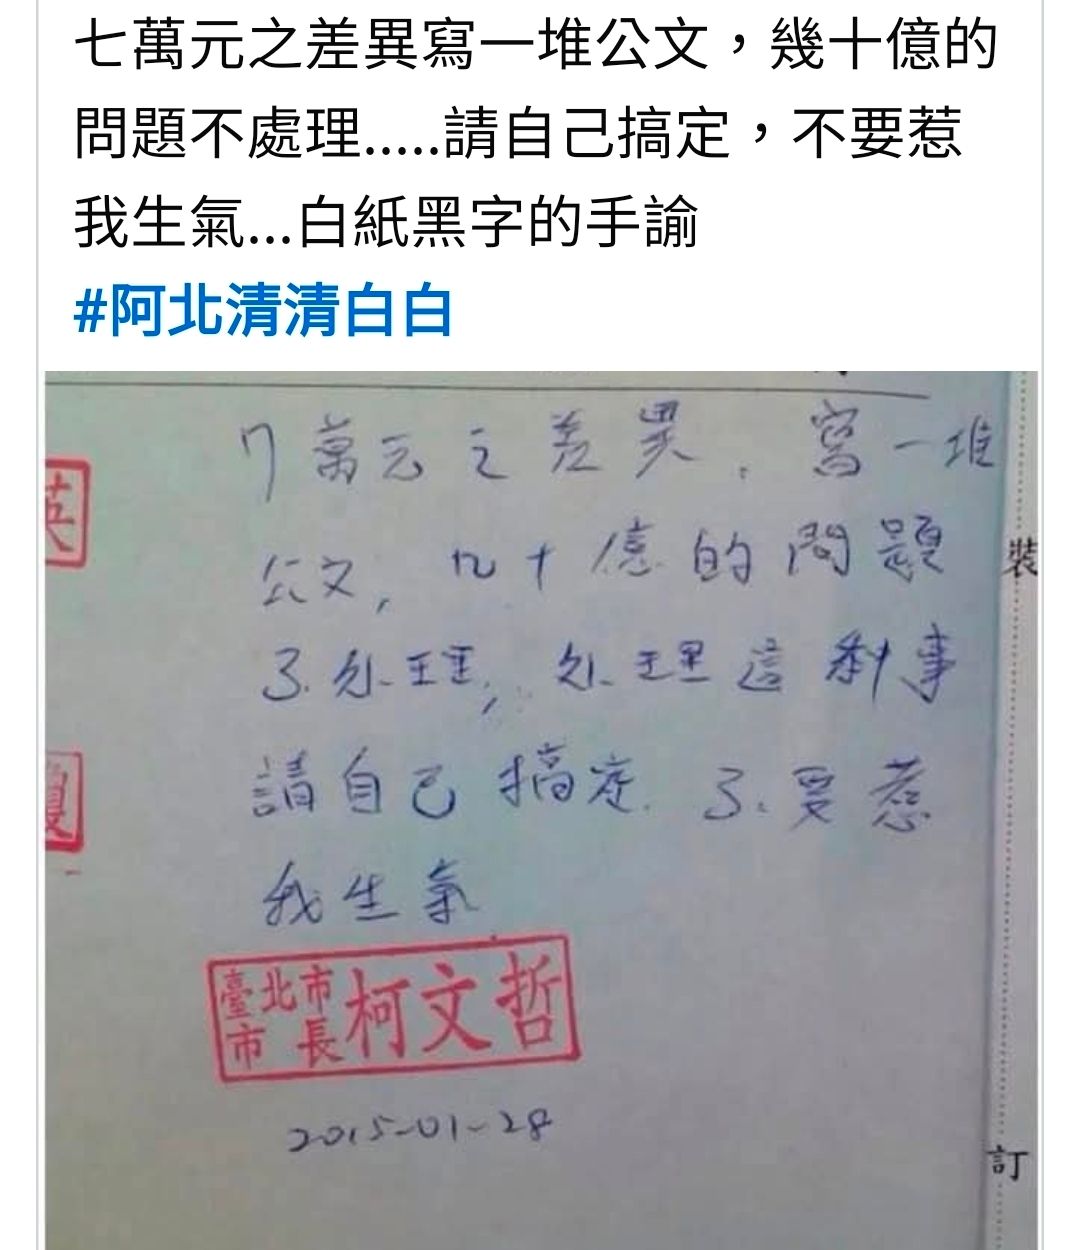 七萬元之差異寫一堆公文，幾十億的
問題不處理.....請自己搞定，不要惹
我生氣...白紙黑字的手諭
#阿北清清白白
英
7萬元之差異．寫一堆
公文，几十億的問題
裝
処理；処理這种事
請自己搞定．要惹
我生氣
臺北市
市長
柯文哲
2015-01-28
訂